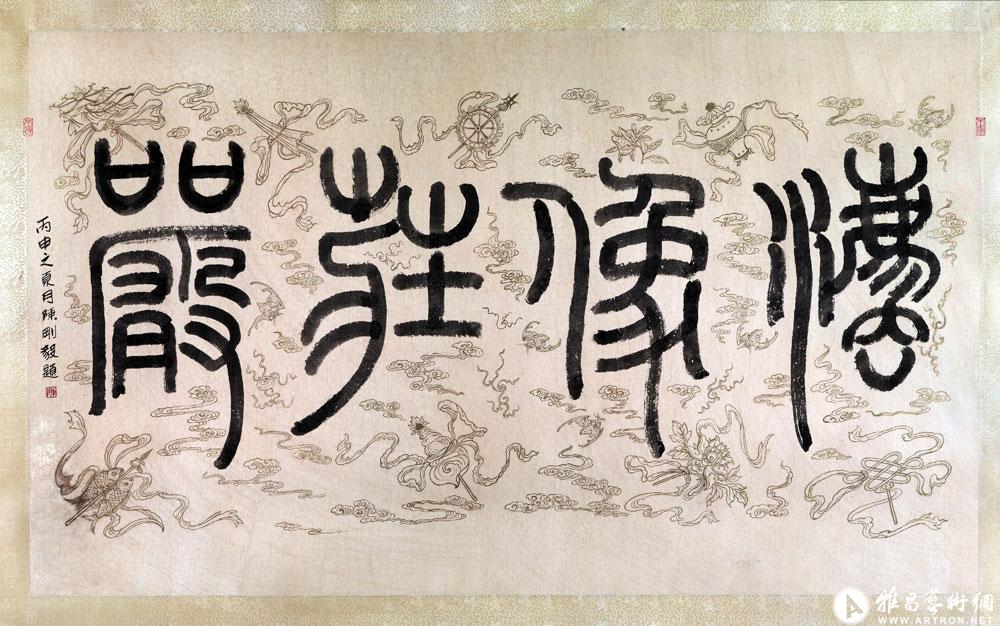 灋像莊嚴
丙申之夏月陳剛毅題
雅昌藝術網
WWW.ARTRON.NET